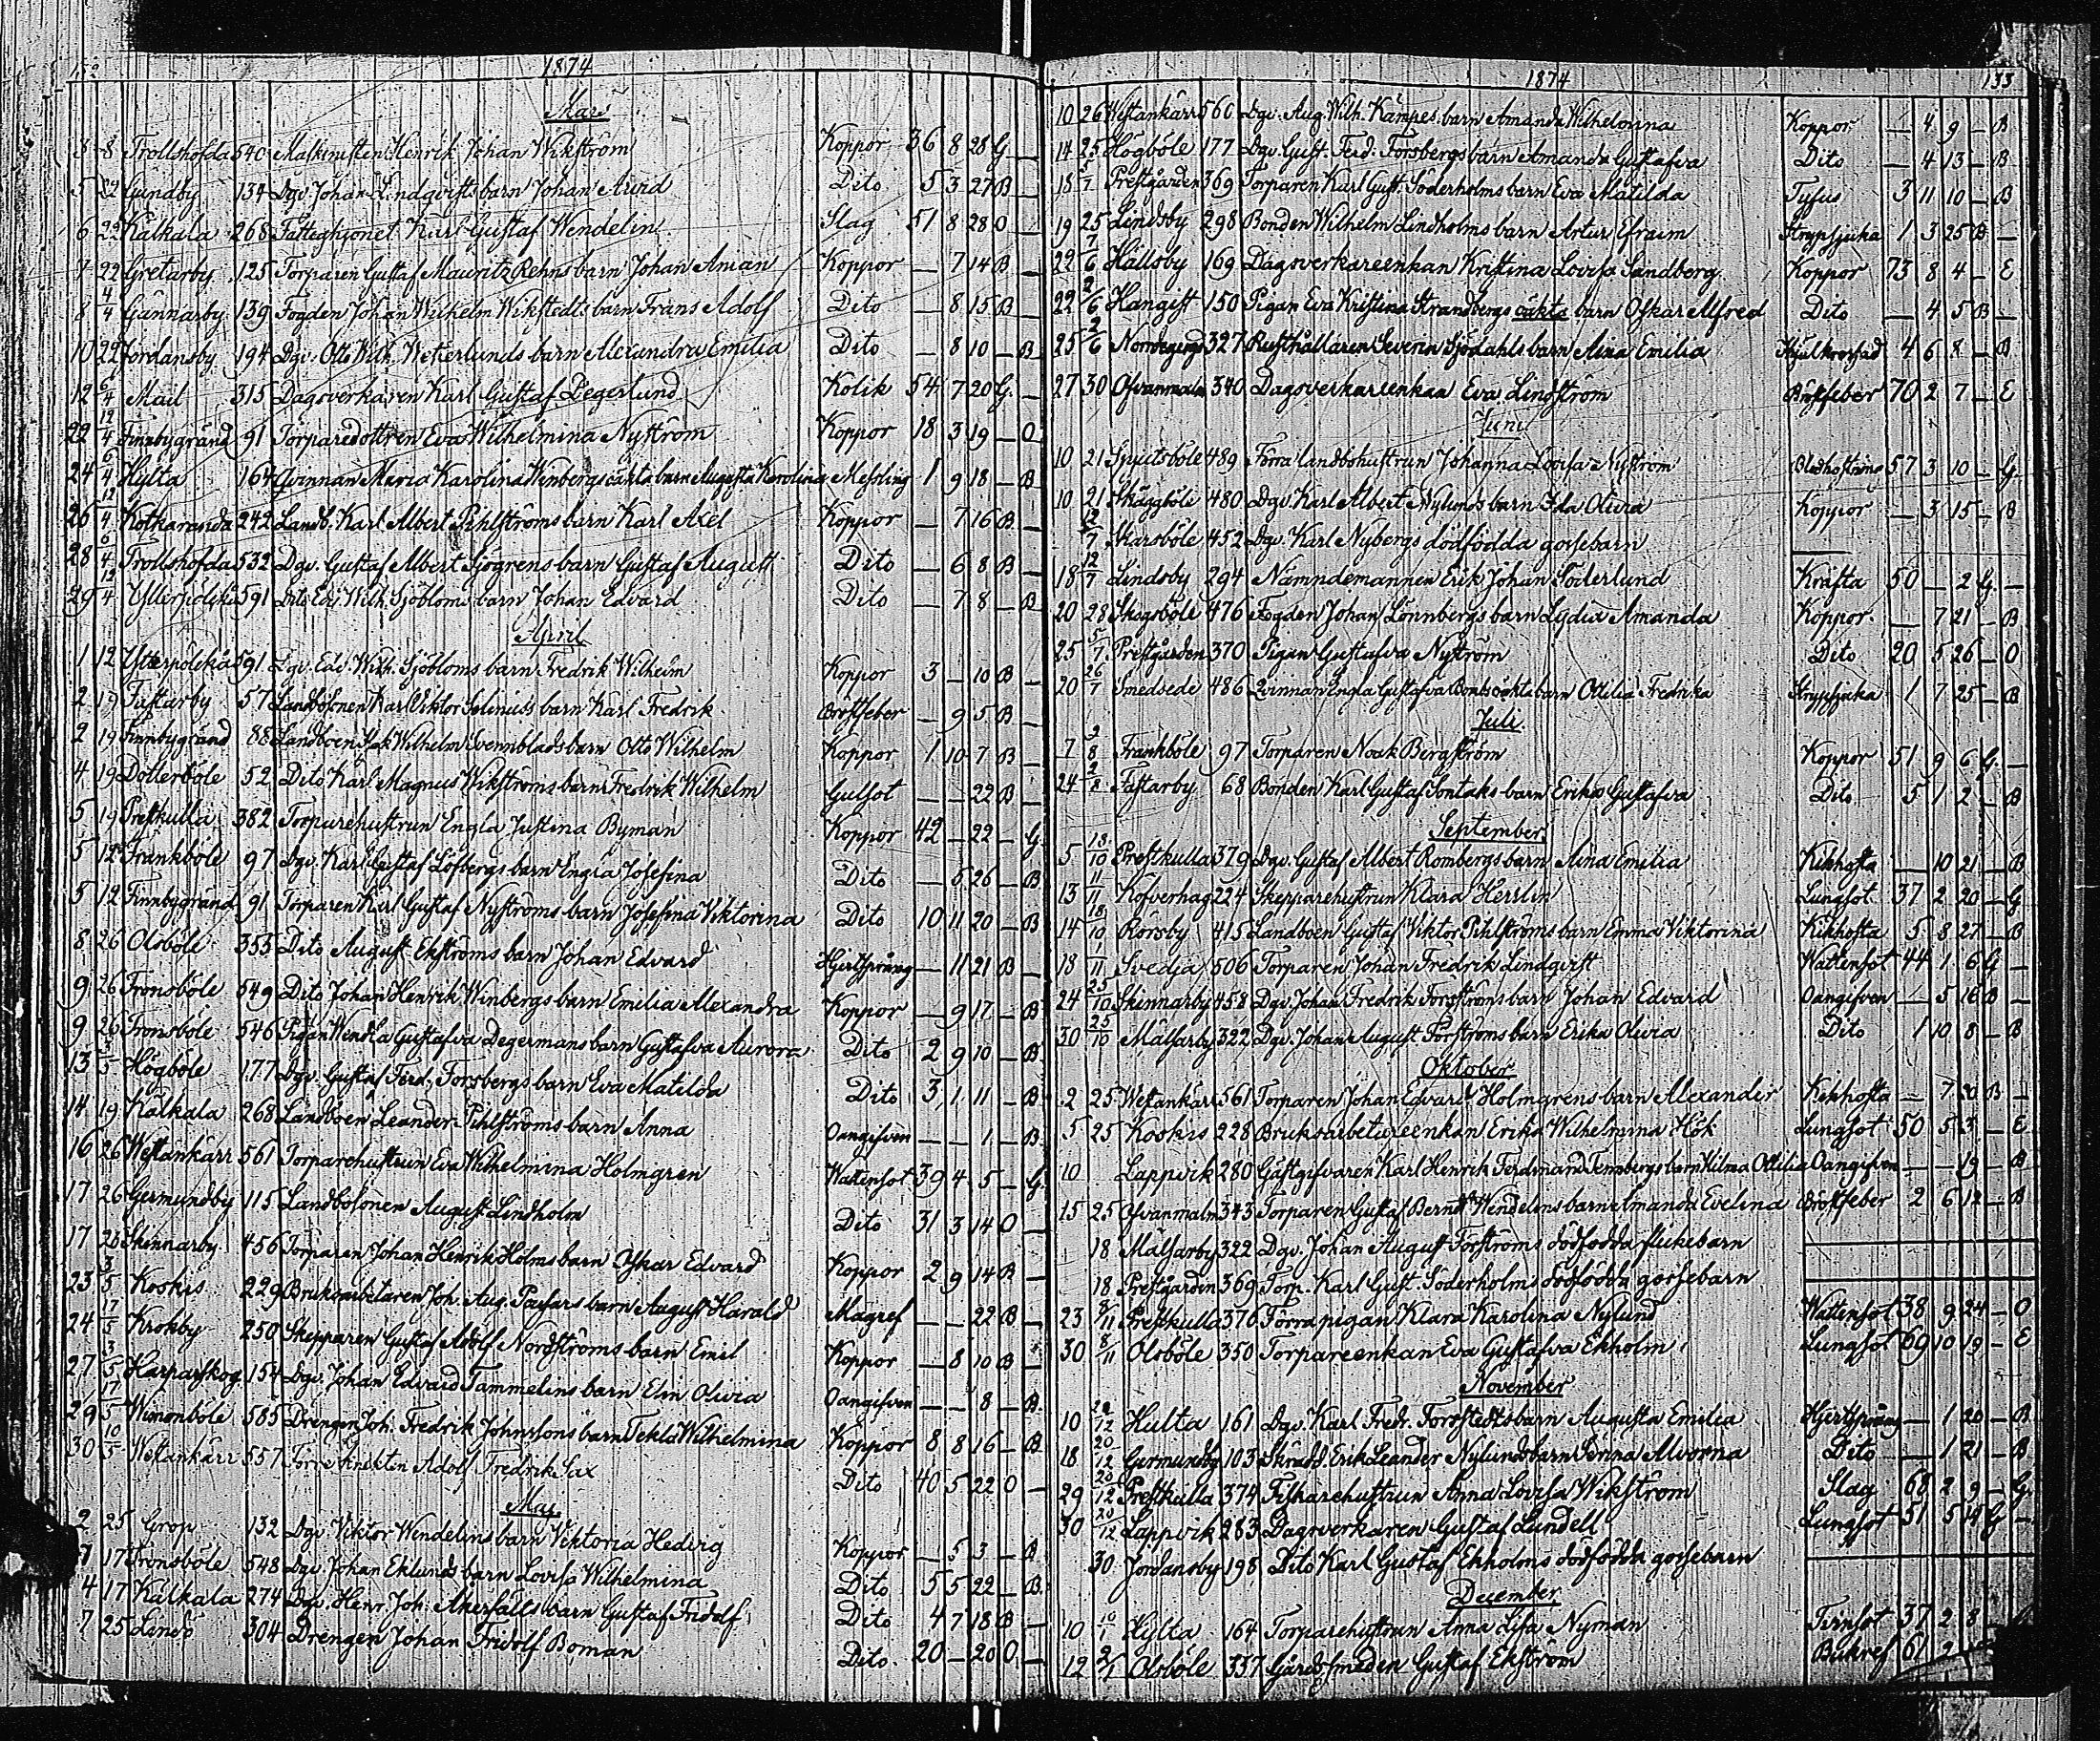 152 1874
Mars
8 8 Trollshofda 540 Maskinisten Henrik Johan Wikström Koppor 36 8 28 G —
5 22 Gundby 134 Dgv. Johan Lindqvists barn Johan Arvid Dito 5 3 27 B —
6 22 Kälkala 268 Fattighjonet Karl Gustaf Wendelin Slag 51 8 28 O —
7 22 Gretarby 125 Torparen Gustaf Mauritz Rehns barn Johan Anian Koppor — 7 14 B —
8 4/4 Gannarby 139 Fogden Johan Wilhelm Wikstedts barn Frans Adolf Dito — 8 15 B —
10 22 Jordansby 194 Dgv. Otto Wilh. Weterlunds barn Alexandra Emilia Dito — 8 10 — B
12 6/4 Mail 315 Dagsverkaren Karl Gustaf Degerlund Kolik 54 7 20 G. —
22 12/4 Finnbygränd 91 Torparedottren Eva Wilhelmina Nyström Koppor 18 3 19 — O
24 6/4 Hylta 164 Qvinnan Maria Karolina Wenbergs oäkta barn Augusta Karolina Messling 1 9 18 — B
26 12/4 Kotkaranda 242 Landb. Karl Albert Pihlströms barn Karl Axel Koppor — 7 16 B —
28 6/4 Trollshofda 532 Dgv. Gustaf Albert Sjögrens barn Gustaf August Dito — 6 8 B —
29 12/4 Ytterpölskä 591 Dito Edv. Wilh. Sjöbloms barn Johan Edvard Dito — 7 8 — B
April
1 12 Ytterpölekä 591 Dgv. Edv. Wilh. Sjöbloms barn Fredrik Wilhelm Koppor 3 — 10 B —
2 19 Fastarby 57 Landbosonen Karl Viktor Selinius's barn Karl Fredrik Bröstfeber — 9 5 B —
2 19 Finnbygränd 88 Landboen Isak Wilhelm Svennblads barn Otto Wilhelm Koppor 1 10 7 B —
4 19 Dotterböle 52 Dito Karl Magnus Wikströms barn Fredrik Wilhelm Gulsot — — 22 B —
5 19 Prestkulla 382 Torparehustrun Engla Justina Byman Koppor 42 — 22 — G
5 12 Frankböle 97 Dgv. Karl Gustaf Löfbergs barn Engla Josefina Dito — 5 26 — B
5 12 Finnbygränd 91 Torparen Karl Gustaf Nyströms barn Josefina Viktorina Dito 10 11 20 — B
8 26 Olsböle 355 Dito August Ekströms barn Johan Edvard Hjertsprång — 11 21 B —
9 26 Tronsböle 549 Dito Johan Henrik Winbergs barn Emilia Alexandra Koppor — 9 17 — B
9 26 Tronsböle 546 Pigan Wendla Gustafva Degermans barn Gustafva Aurora Dito 2 9 10 — B
13 3/5 Högböle 177 Dgv. Gustaf Ferd. Forsbergs barn Eva Matilda Dito 3 1 11 — B
14 19 Kälkala 268 Landboen Leander Pihlströms barn Anna Oangifven — — 1 — B
16 26 Westankärr 561 Torparehustrun Eva Wilhelmina Holmgren Wattensot 39 4 5 — G
17 26 Germundby 115 Landbosonen August Lindholm Dito 31 3 14 O —
17 26 Skinnarby 456 Torparen Johan Henrik Holms barn Oskar Edvard Koppor 2 9 14 B —
23 3/5 Kookis 229 Bruksarbetaren Joh. Aug. Passars barn August Harald Magref — — 22 B —
24 17/5 Krokby 250 Skepparen Gustaf Adolf Nordströms barn Emil Koppor — 8 10 B —
27 3/5 Harparskog 154 Dgv. Johan Edvard Tammelins barn Elin Olivia Oangifven — — 8 — B
29 17/5 Wimonböle 585 Drengen Joh. Fredrik Johnssons barn Tekla Wilhelmina Koppor 8 8 16 — B
30 10/5 Westankärr 557 Förre Knekten Adolf Fredrik Sax Dito 40 5 22 O —
Maj
2 25 Grop 132 Dgv. Viktor Wendelins barn Viktoria Hedvig Koppor — 5 3 — B
7 17 Tronsböle 548 Dgv. Johan Eklunds barn Lovisa Wilhelmina Dito 5 5 22 — B
4 17 Kälkala 274 Dgv. Henr. Joh. Åkerfälts barn Gustaf Fridolf Dito 4 7 18 B —
7 25 Lindö 304 Drengen Johan Fridolf Boman Dito 20 — 20 O —
1874 133
10 26 Westankärr 560 Dgv. Aug. Wilh. Kämpes barn Amanda Wilhelmina Koppor — 4 9 — B
14 25 Högböle 177 Dgv. Gust. Ferd. Forsbergs barn Amanda Gustafva Dito — 4 13 — B
18 5/7 Prestgården 369 Torparen Karl Gust. Söderholms barn Eva Matilda Tyfus 3 11 10 — B
19 25 Lindsby 298 Bonden Wilhelm Lindholms barn Artur Efraim Strypsjuka 1 3 25 B —
22 7/6 Hällsby 169 Dagsverkareenkan Kristina Lovisa Sandberg Koppor 73 8 4 — E
22 2/6 Hangist 150 Pigan Eva Kristina Strandbergs oäkta barn Oskar Alfred Dito — 4 5 B —
25 2/6 Norrbygård 327 Rusthållaren Severin Sjödahls barn Aina Emilia Skjulkrossad 4 6 8 — B
27 30 Ofvanmalm 340 Dagsverkareenkan Eva Lindström Bröstfeber 70 2 7 — E
Juni
10 21 Spjutsböle 489 Förra landbohustrun Johanna Lovisa Nyström Blodhostning 57 3 10 — G
10 21 Skäggböle 480 Dgv. Karl Albert Nylunds barn Ida Olivia Koppor — 3 15 — B
12/7 Skarsböle 452 Dgv. Karl Nybergs dödfödda gossebarn
18 12/7 Lindsby 294 Nämndemannen Erik Johan Söderlund Kräfta 50 — 2 G —
20 28 Skogsböle 476 Fogden Johan Lönnbergs barn Lydia Amanda Koppor — 7 21 — B
25 5/7 Prestgården 370 Pigan Gustafva Nyström Dito 20 5 26 — O
20 26/7 Smedsede 486 Qvinnan Engla Gustafva Bonts oäkta barn Ottilia Fredrika Strypsjuka 1 7 25 — B
Juli
7 2/8 Frankböle 97 Torparen Noak Bergström Koppor 51 9 6 G. —
24 2/8 Fastarby 68 Bonden Karl Gustaf Sontaks barn Erika Gustafva Dito 5 1 2 — B
September
5 18/10 Prestkulla 379 Dgv. Gustaf Albert Rombergs barn Aina Emilia Kikhosta — 10 21 — B
13 11/11 Kofverhag 224 Skepparehustrun Klara Herrlin Lungsot 37 2 20 — G
14 18/10 Rörsby 415 Landboen Gustaf Viktor Pihlströms barn Emma Viktorina Kikhosta 5 8 27 — B
18 1/11 Svedja 506 Torparen Johan Fredrik Lindqvist Wattensot 44 1 6 G —
24 25/10 Skinnarby 458 Dgv. Johan Fredrik Forsströms barn Johan Edvard Oangifven — 5 16 B —
30 25/10 Malsarby 322 Dgv. Johan August Forströms barn Erika Olivia Dito 1 10 8 — B
Oktober
2 25 Westankärr 561 Torparen Johan Edvard Holmgrens barn Alexander Kikhosta — 7 20 B —
5 25 Kookis 228 Bruksarbetareenkan Erika Wilhelmina Hök Lungsot 50 5 3 — E
10 Lappvik 280 Gästgifvaren Karl Henrik Ferdinand Tennbergs barn Hilma Ottilia Oangifven — — 19 — B
15 25 Ofvanmalm 343 Torparen Gustaf Berndt Wendelins barn Amanda Evelina Bröstfeber 2 6 12 — B
18 Malsarby 322 Dgv. Johan August Forströms dödfödda flickebarn
18 Prestgården 369 Torp. Karl Gust. Söderholms dödfödda gossebarn
23 8/11 Prestkulla 376 Förra pigan Klara Karolina Nylund Wattensot 38 9 24 — O
30 8/11 Olsböle 350 Torpareenkan Eva Gustafva Ekholm Lungsot 69 10 19 — E
November
10 20/12 Hulta 161 Dgv. Karl Fredr. Forsstedts barn Augusta Emilia Hjertsprång — 1 20 — B
18 20/12 Germundby 103 Skrädd. Erik Leander Nylunds barn Senna Alvorna Dito — 1 21 — B
29 20/12 Prestkulla 374 Fiskarehustrun Anna Lovisa Wikström Slag 68 2 9 — G.
30 20/12 Lappvik 283 Dagsverkaren Gustaf Lundell Lungsot 51 5 19 G —
30 Jordansby 198 Dito Karl Gustaf Ekholms dödfödda gossebarn
December
10 10/1 Hylta 164 Torparehustrun Anna Lisa Nyman Tärnsot 37 2 8
12 2/1 Olsböle 337 Gårdssmeden Gustaf Ekström Bukref 61 2